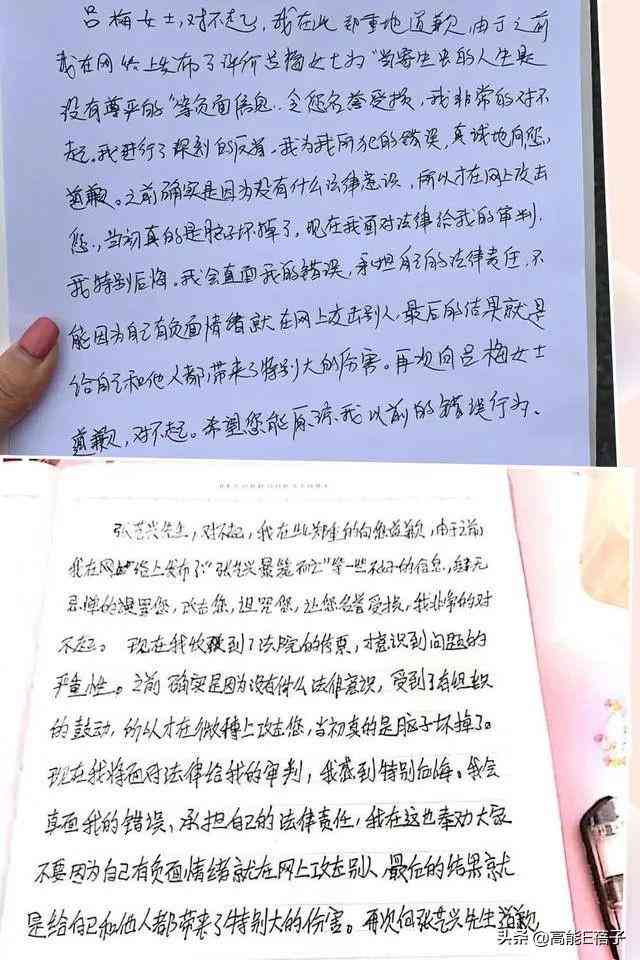 吕梅女士,对不起,我在此郑重地道歉,由于之前
我在网络上发布了评价吕梅女士为"当寄生虫的人生是
没有尊严的"等负面信息.令您名誉受损,我非常的对不
起.我进行了深刻的反省.我为我所犯的错误,真诚地向您,
道歉。之前确实是因为没有什么法律意识,所以才在网上攻击
您.,当初真的是脑子坏掉了,现在我面对法律给我的审判.
我特别后悔.我会直面我的错误,承担自己的法律责任.不
能因为自己有负面情绪就在网上攻击别人.最后的结果就是
给自己和他人都带来了特别大的伤害。再次向吕梅女士
道歉,对不起。希望您能原谅我以前的错误行为.
张艺兴先生,对不起,我在此郑重的向您道歉,由于之前
我在网络上发布了"张艺兴最能"等一些不好的信息,肆无
忌惮的谩骂您,攻击您,诅咒您,让您名誉受损,我非常的对
不起。现在我收到了法院的传票,才意识到问题的
严重性。之前确实是因为没有什么法律意识,受到了有组织
的鼓动,所以才在微博上攻击您,当初真的是脑子坏掉了。
现在我将面对法律给我的审判,我感到特别后悔。我会
直面我的错误、承担自己的法律责任,我在这也奉劝大家
不要因为自己有负面情绪就在网上攻击别人,最后的结果就
是给自己和他人都带来了特别大的伤害。再次向张艺兴先生道歉
头条 @高能E蓓子